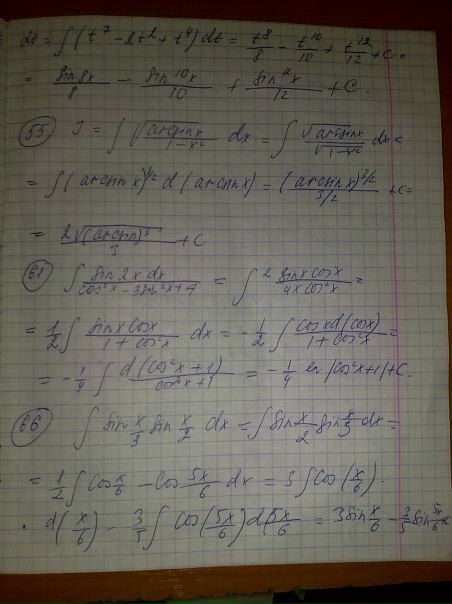 dt = ∫(t⁷ - 2t² + t⁴) dt = t⁸/8 - t¹⁰/10 + t¹²/12 + C =
= sin8x/8 - sin¹⁰x/10 + sin¹²x/12 + C.
55 J = ∫ √(arcsinx/1-x²) dx = ∫ √arcsinx/√(1-x²) dx =
= ∫(arcsinx)^1/2 d(arcsinx) = (arcsinx)^3/2 / 3/2 + C =
= 2√(arcsin)³/3 + C
61 ∫ sin2x dx/cos²x - 3sin²x + 4 = ∫ 2 sinx cosx/4x cos²x =
= 1/2 ∫ sinx cosx/1 + cos²x dx = -1/2 ∫ cosx d(cosx)/1 + cos²x =
= -1/4 ∫ d(cos²x + 1)/cos²x + 1 = -1/4 ln|cos²x + 1| + C.
66 ∫ sin x/3 sin x/2 dx = ∫ sin x/2 sin x/3 dx =
= 1/2 ∫ cos x/6 - cos 5x/6 dx = 3 ∫ cos(x/6) ·
· d(x/6) - 3/5 ∫ cos(5x/6) d 5x/6 = 3 sin x/6 - 3/5 sin 5x/6 + C